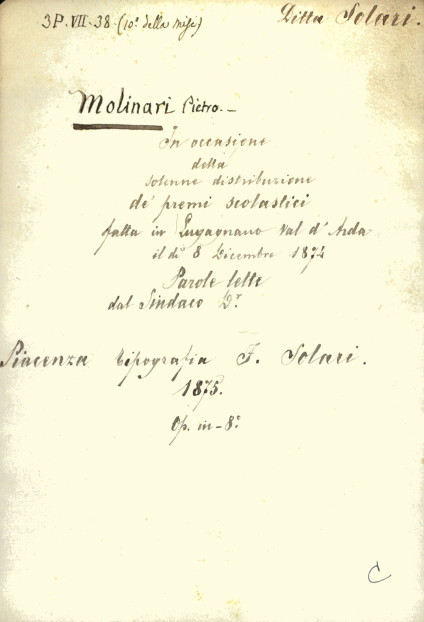 3P. VII. 38 (10° della misc)
Ditta Solari.
Molinari Pietro. –
In occasione
della
solenne distribuzione
de' premi scolastici
fatta in Lugagnano Val d'Arda
il dì 8 Dicembre 1874
Parole lette
dal Sindaco Dr
Piacenza Tipografia F. Solari.
1875.
Op. in-8°
C